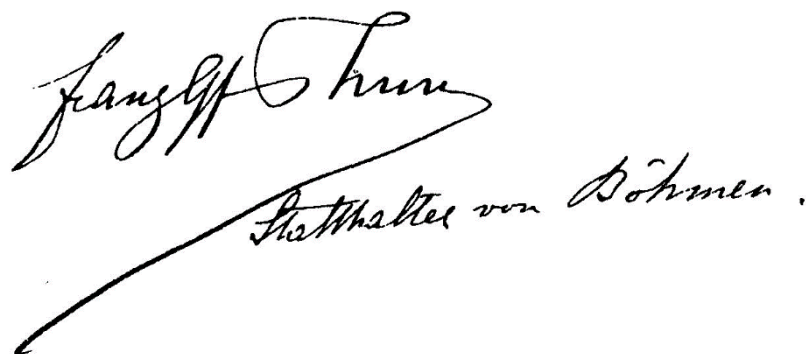 Franz Gf Thun
Statthalter von Böhmen.